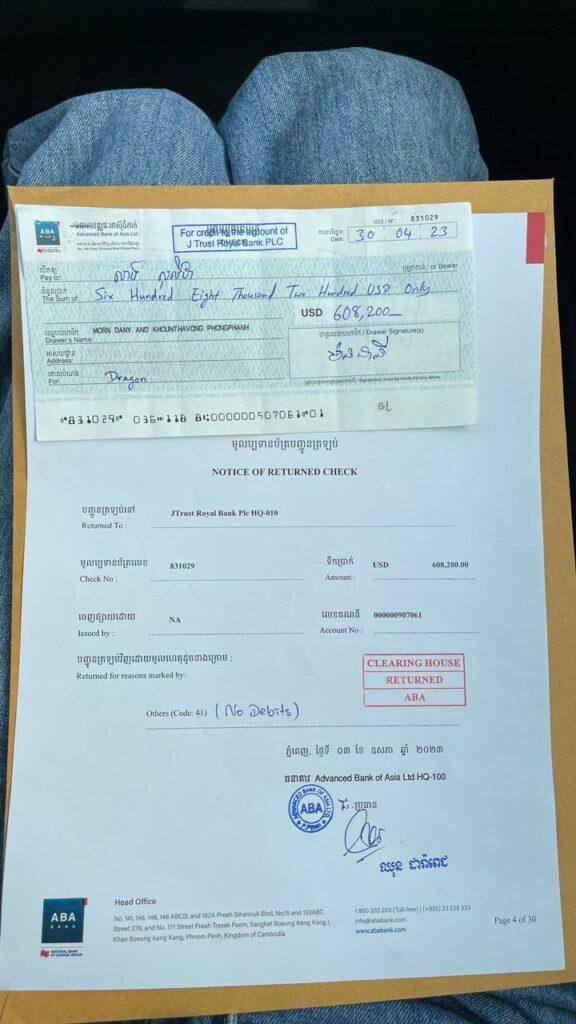 ABA
BANK
Advanced Bank of Asia Ltd.
For credit to the account of
J Trust Royal Bank PLC
លេខ / N°: 831029
កាលបរិច្ឆេទ
Date: 30 04 23
បើកឲ្យ
Pay to:
អ្នកកាន់ / or Bearer
ចំនួនប្រាក់
The Sum of: Six Hundred Eight Thousand Two Hundred USD Only
USD 608,200
ឈ្មោះម្ចាស់
Drawer's Name: MORN DANY AND KHOUNTHAVONG PHONGPHANH
ហត្ថលេខា / Drawer Signature(s)
អាសយដ្ឋាន
Address:
គោលបំណង
For: Dragon
⑈831029⑈ 036⑈118 8⑆000000907061⑈01
BL
មូលប្បទានប័ត្របញ្ជូនត្រឡប់
NOTICE OF RETURNED CHECK
បញ្ជូនត្រឡប់ទៅ
Returned To : JTrust Royal Bank Plc HQ-010
មូលប្បទានប័ត្រលេខ
Check No : 831029
ទឹកប្រាក់
Amount : USD 608,200.00
ចេញផ្សាយដោយ
Issued by : NA
លេខគណនី
Account No : 000000907061
បញ្ជូនត្រឡប់វិញដោយមូលហេតុដូចខាងក្រោម :
Returned for reasons marked by:
CLEARING HOUSE
RETURNED
ABA
Others (Code: 41) (No Debits)
ភ្នំពេញ, ថ្ងៃទី ០៣ ខែ ឧសភា ឆ្នាំ ២០២៣
ធនាគារ Advanced Bank of Asia Ltd HQ-100
ADVANCED BANK OF ASIA LTD.
ABA
P.PENH
ប្រធាន
ABA
BANK
NATIONAL BANK
OF CANADA GROUP
Head Office
No. 141, 146, 148, 148 ABCD, and 162A Preah Sihanouk Blvd, No15 and 153ABC
Street 278, and No. 171 Street Preah Trasak Paem, Sangkat Boeung Keng Kang I,
Khan Boeung Keng Kang, Phnom Penh, Kingdom of Cambodia
1 800 203 203 (Toll-free) | (+855) 23 225 333
info@ababank.com
www.ababank.com
Page 4 of 30